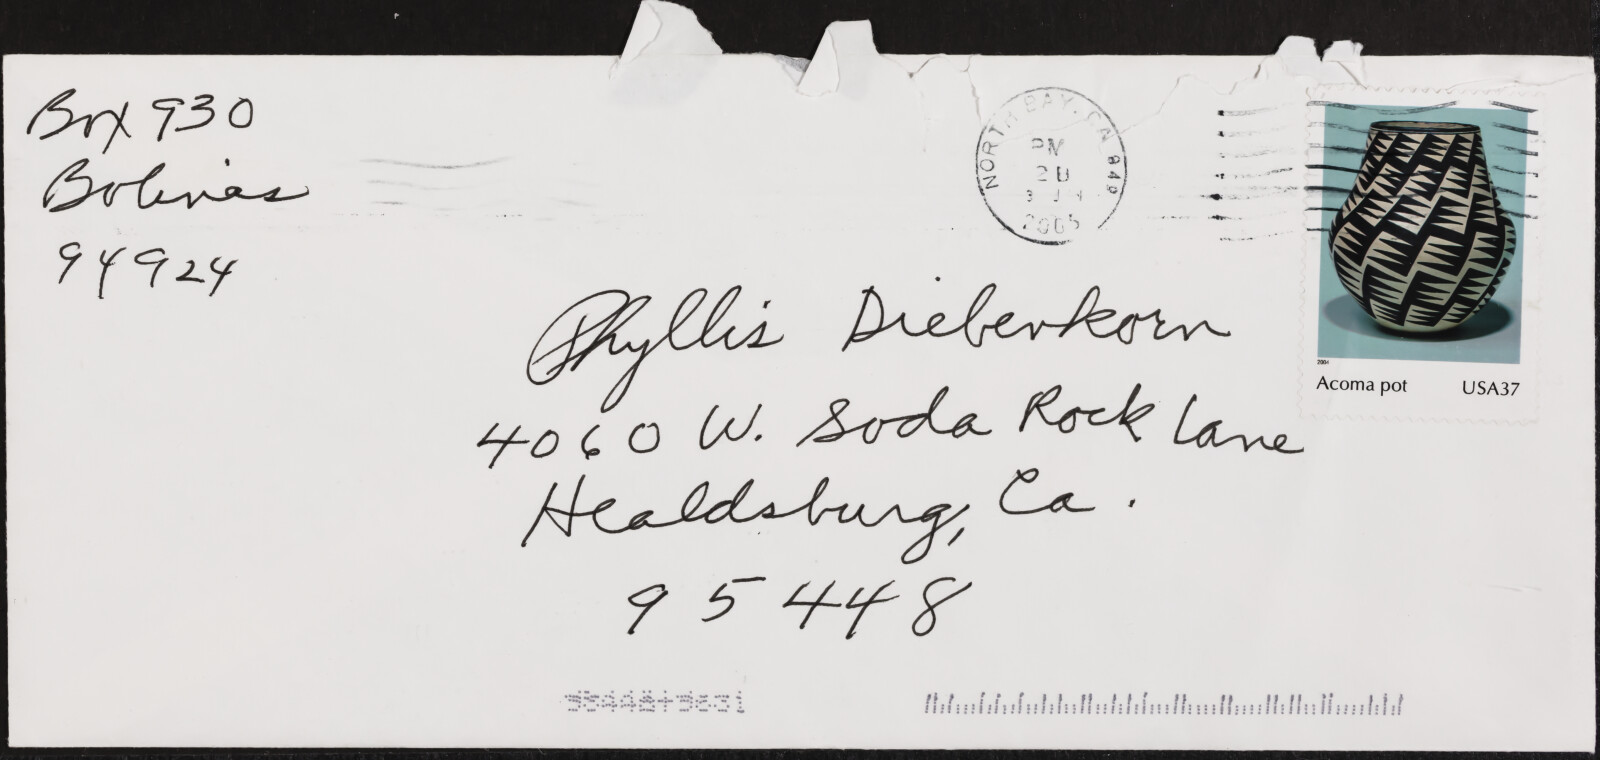 Box 930
Bolinas
94924
NORTH BAY, CA 940
PM
28
2005
2004
Acoma pot USA37
Phyllis Diebenkorn
4060 W. Soda Rock Lane
Healdsburg, Ca.
95448